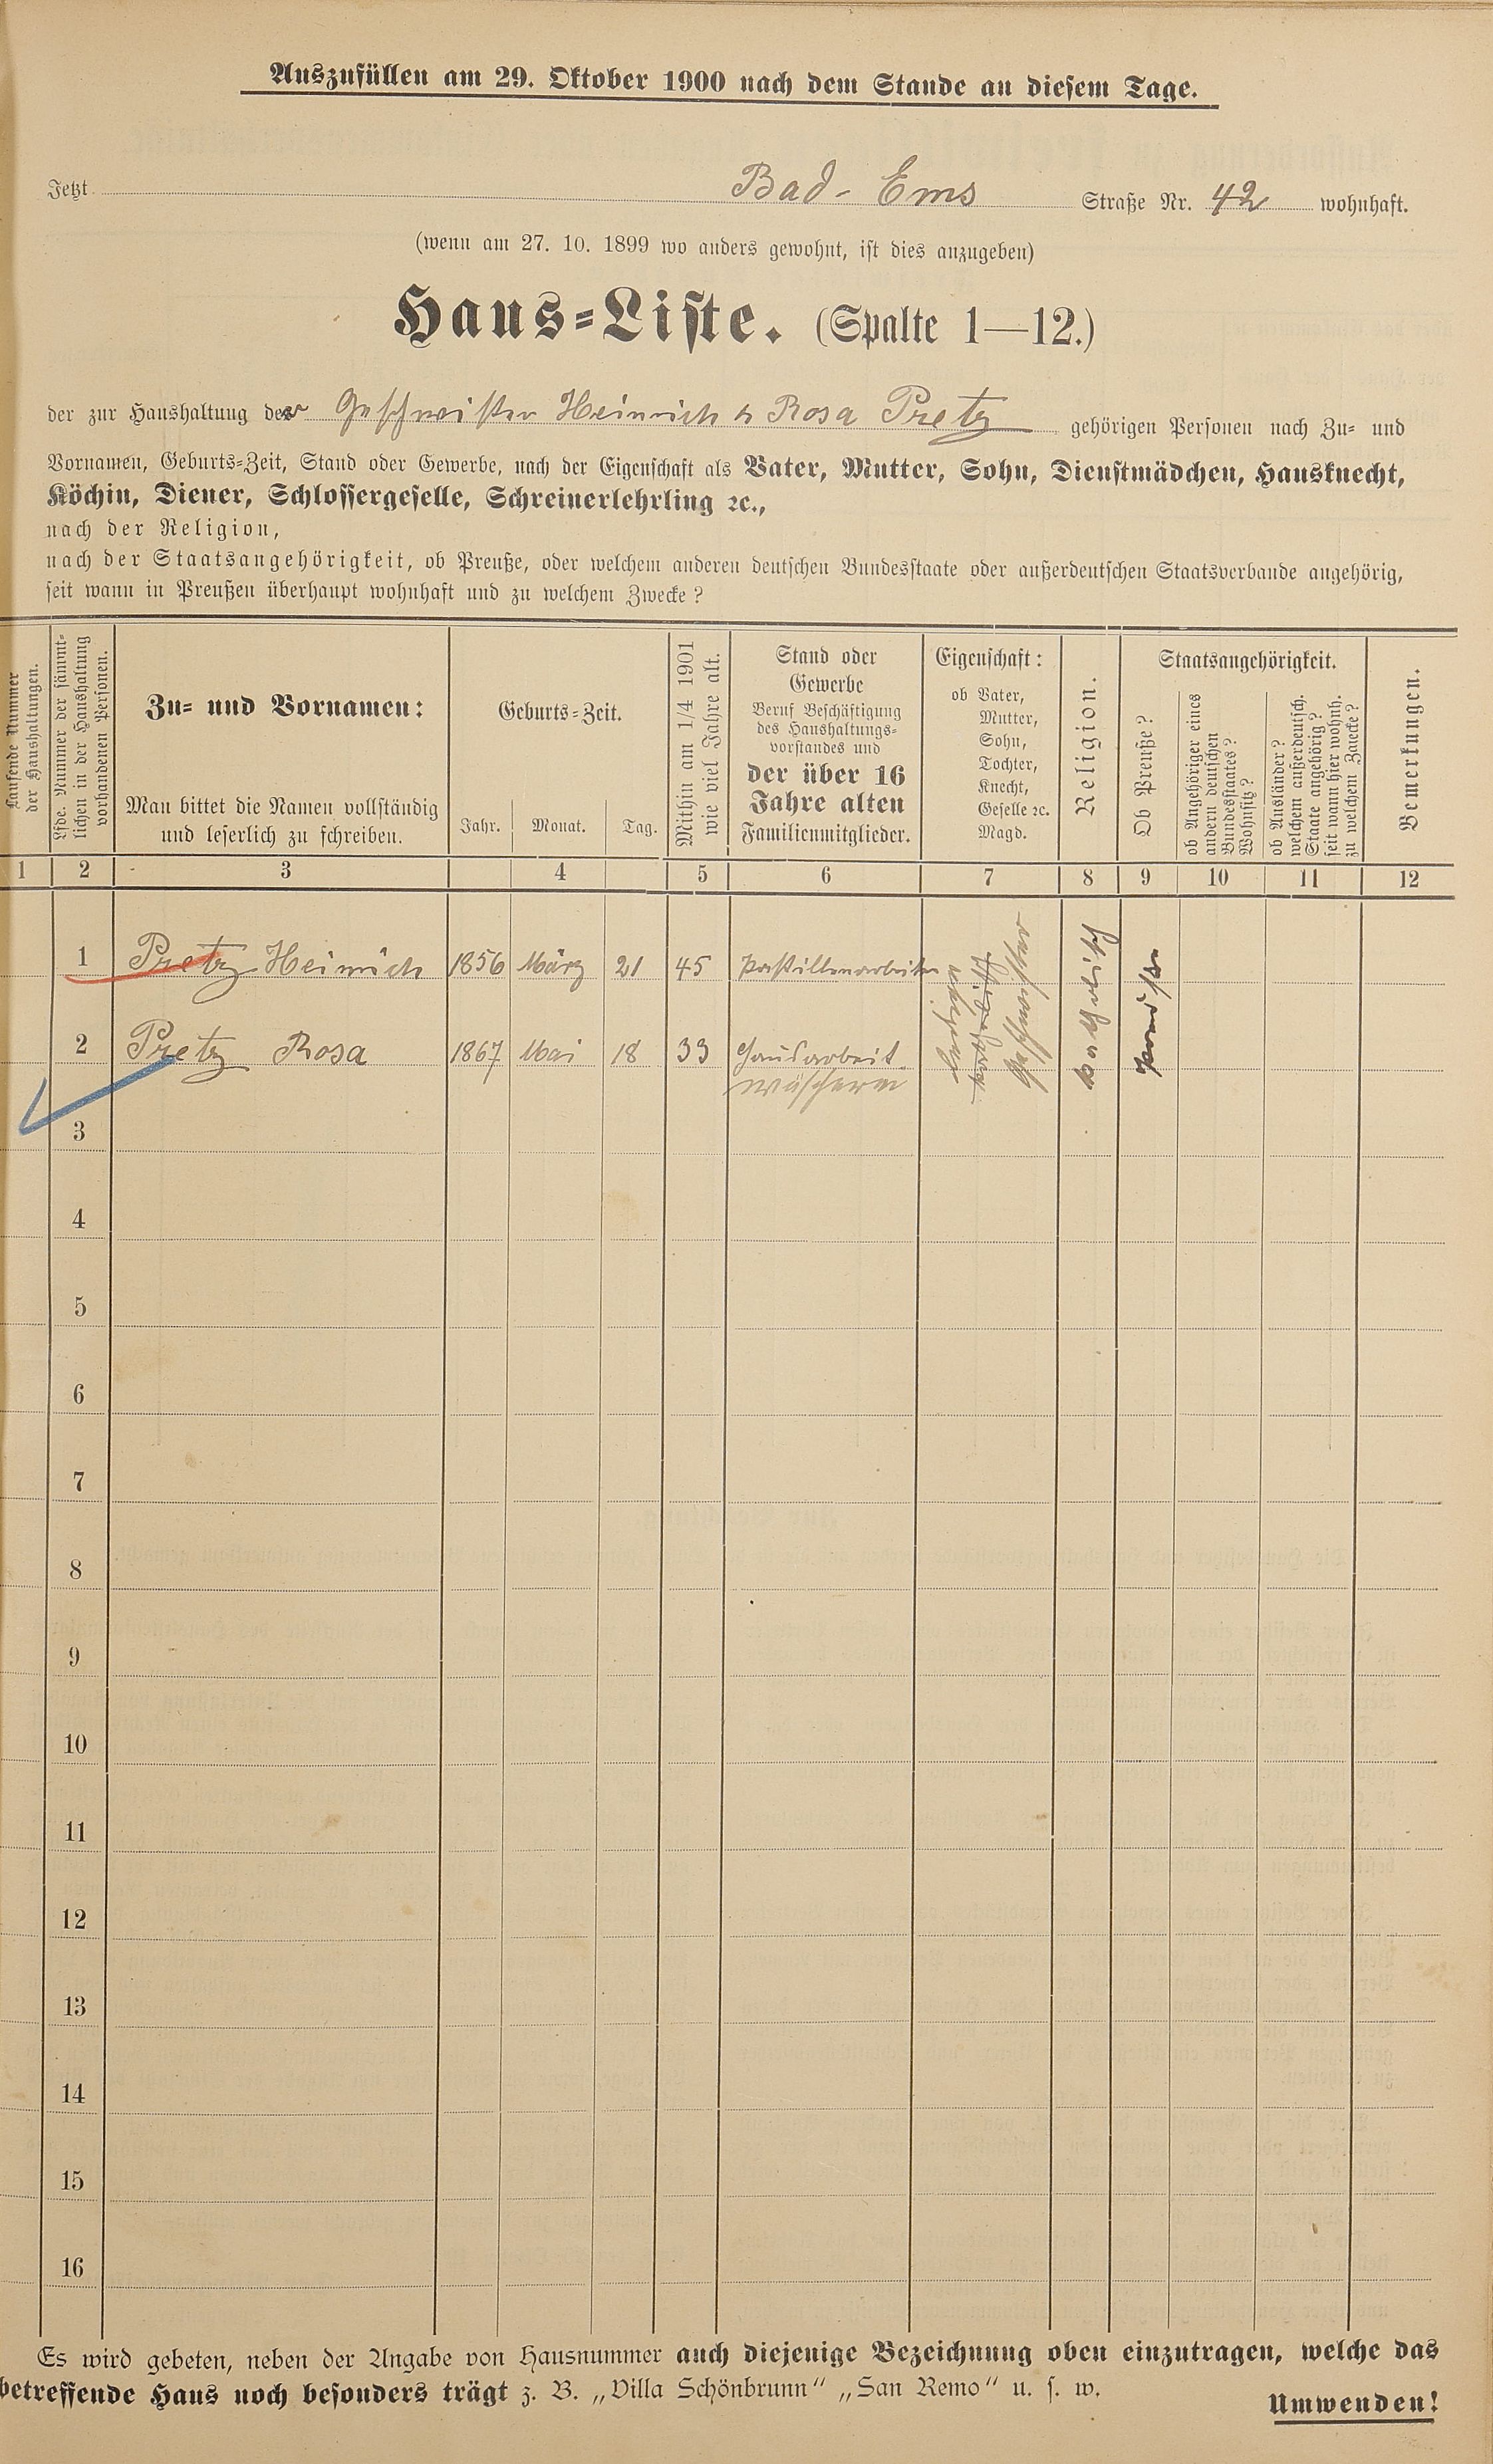 Auszufüllen am 29. Oktober 1900 nach dem Stande an diesem Tage.
Jetzt Bad-Ems Straße Nr. 42 wohnhaft.
(wenn am 27. 10. 1899 wo anders gewohnt, ist dies anzugeben)
Haus-Liste. (Spalte 1—12.)
der zur Haushaltung der Geschwister Heinrich & Rosa Pretz gehörigen Personen nach Zu- und
Vornamen, Geburts-Zeit, Stand oder Gewerbe, nach der Eigenschaft als Vater, Mutter, Sohn, Dienstmädchen, Hausknecht,
Köchin, Diener, Schlossergeselle, Schreinerlehrling ꝛc.,
nach der Religion,
nach der Staatsangehörigkeit, ob Preuße, oder welchem anderen deutschen Bundesstaate oder außerdeutschen Staatsverbande angehörig,
seit wann in Preußen überhaupt wohnhaft und zu welchem Zwecke?
Laufende Nummer
der Haushaltungen.
Lfde. Nummer der sämmt-
lichen in der Haushaltung
vorhandenen Personen.
Zu- und Vornamen:
Man bittet die Namen vollständig
und leserlich zu schreiben.
Geburts-Zeit.
Jahr. Monat. Tag.
Mithin am 1/4 1901
wie viel Jahre alt.
Stand oder
Gewerbe
Beruf Beschäftigung
des Haushaltungs-
vorstandes und
der über 16
Jahre alten
Familienmitglieder.
Eigenschaft:
ob Vater,
Mutter,
Sohn,
Tochter,
Knecht,
Geselle ꝛc.
Magd.
Religion.
Staatsangehörigkeit.
Ob Preuße?
ob Angehöriger eines
andern deutschen
Bundesstaates?
Wohnsitz?
ob Ausländer?
welchem außerdeutsch.
Staate angehörig?
seit wann hier wohnh.
zu welchem Zwecke?
Bemerkungen.
1 2 3 4 5 6 7 8 9 10 11 12
1 Pretz Heinrich 1856 März 21 45 Pastillenarbeiter
2 Pretz Rosa 1867 Mai 18 33 Hausarbeit
Wäscherin
Geschwister
katholisch
Preuße
3
4
5
6
7
8
9
10
11
12
13
14
15
16
Es wird gebeten, neben der Angabe von Hausnummer auch diejenige Bezeichnung oben einzutragen, welche das
betreffende Haus noch besonders trägt z. B. „Villa Schönbrunn“ „San Remo“ u. s. w.
Umwenden!